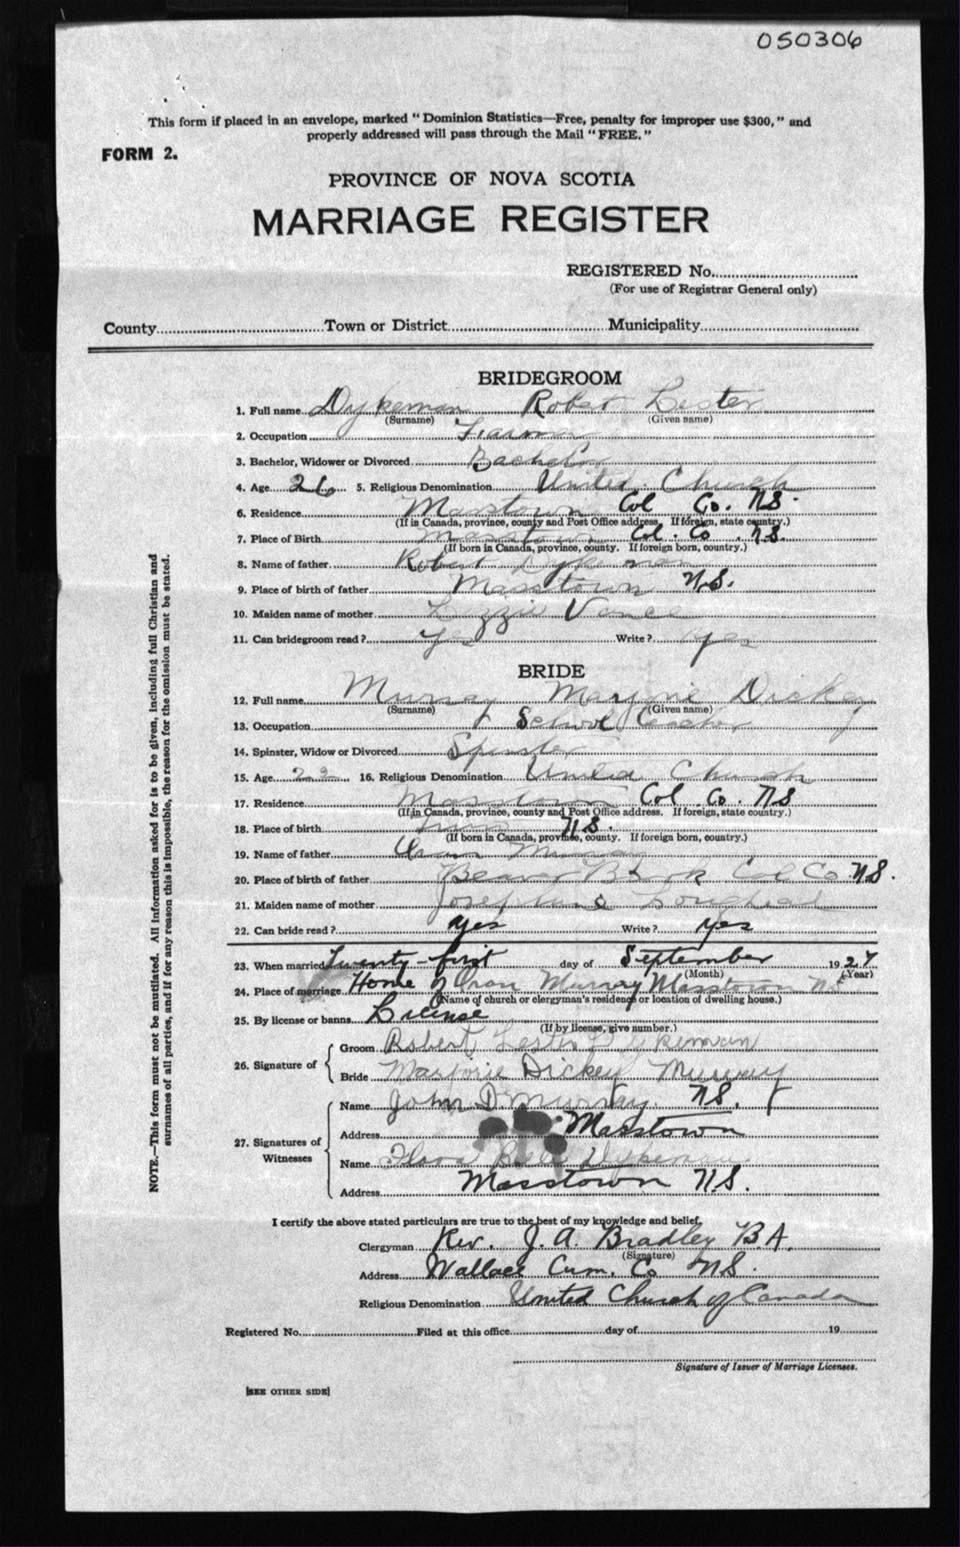 050306
This form if placed in an envelope, marked "Dominion Statistics—Free, penalty for improper use $300," and
properly addressed will pass through the Mail "FREE."
FORM 2.
PROVINCE OF NOVA SCOTIA
MARRIAGE REGISTER
REGISTERED No.
(For use of Registrar General only)
County Town or District Municipality
BRIDEGROOM
1. Full name Dykeman Robert Lester
(Surname) (Given name)
2. Occupation Farmer
3. Bachelor, Widower or Divorced Bachelor
4. Age 26 5. Religious Denomination United Church
6. Residence Masstown Col Co. N.S.
(If in Canada, province, county and Post Office address. If foreign, state country.)
7. Place of Birth Masstown Col. Co. N.S.
(If born in Canada, province, county. If foreign born, country.)
8. Name of father Robert Dykeman
9. Place of birth of father Masstown N.S.
10. Maiden name of mother Lizzie Vance
11. Can bridegroom read? Yes Write? Yes
BRIDE
12. Full name Murray Marjorie Dickey
(Surname) (Given name)
13. Occupation School Teacher
14. Spinster, Widow or Divorced Spinster
15. Age 16. Religious Denomination United Church
17. Residence Masstown Col. Co. N.S
(If in Canada, province, county and Post Office address. If foreign, state country.)
18. Place of birth N.S.
(If born in Canada, province, county. If foreign born, country.)
19. Name of father Oran Murray
20. Place of birth of father Beaver Brook Col Co N.S.
21. Maiden name of mother Josephine Loughead
22. Can bride read? Yes Write? Yes
23. When married Twenty-first day of September 1927
(Month) (Year)
24. Place of marriage Home of Oran Murray Masstown NS
(Name of church or clergyman's residence or location of dwelling house.)
25. By license or banns License
(If by license, give number.)
26. Signature of
Groom Robert Lester Dykeman
Bride Marjorie Dickey Murray
27. Signatures of Witnesses
Name John D Murray. N.S.
Address Masstown
Name Flora Bell Dykeman
Address Masstown N.S.
I certify the above stated particulars are true to the best of my knowledge and belief.
Clergyman Rev. J. A. Bradley B.A.
(Signature)
Address Wallace Cum. Co N.S.
Religious Denomination United Church of Canada
Registered No. Filed at this office day of 19
Signature of Issuer of Marriage Licenses.
[SEE OTHER SIDE]
NOTE.—This form must not be mutilated. All information asked for is to be given, including full Christian and
surnames of all parties, and if for any reason this is impossible, the reason for the omission must be stated.